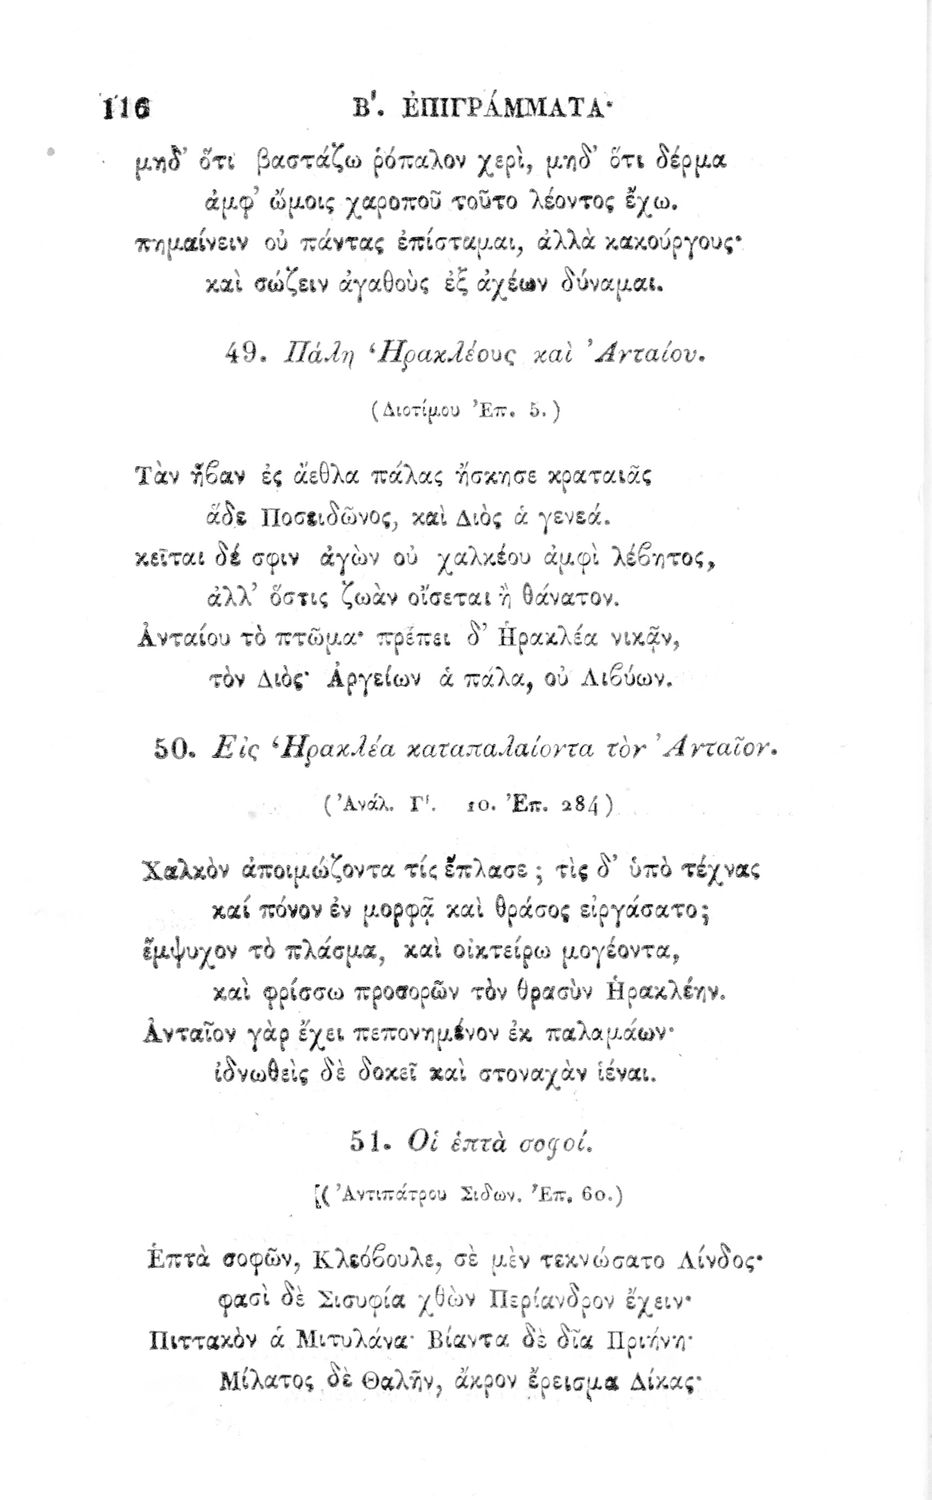 116 Β'. ἘΠΙΓΡΆΜΜΑΤΑ·
μηδ' ὅτι βαστάζω ῥόπαλον χερὶ, μηδ' ὅτι δέρμα
ἀμφ' ὤμοις χαροποῦ τοῦτο λέοντος ἔχω.
πημαίνειν οὐ πάντας ἐπίσταμαι, ἀλλὰ κακούργους·
καὶ σώζειν ἀγαθοὺς ἐξ ἀχέων δύναμαι.
49. Πάλη Ἡρακλέους καὶ Ἀνταίου.
(Διοτίμου Ἐπ. 5.)
Τὰν ἥϐαν ἐς ἄεθλα πάλας ἤσκησε κραταιᾶς
ἅδε Ποσειδῶνος, καὶ Διὸς ἁ γενεά.
κεῖται δέ σφιν ἀγὼν οὐ χαλκέου ἀμφὶ λέϐητος,
ἀλλ' ὅστις ζωὰν οἴσεται ἢ θάνατον.
Ἀνταίου τὸ πτῶμα· πρέπει δ' Ἡρακλέα νικᾷν,
τὸν Διὸς· Ἀργείων ἁ πάλα, οὐ Λιϐύων.
50. Εἰς Ἡρακλέα καταπαλαίοντα τὸν Ἀνταῖον.
(Ἀνάλ. Γ'. 10. Ἐπ. 284)
Χαλκὸν ἀποιμώζοντα τίς ἔπλασε ; τὶς δ' ὑπὸ τέχνας
καί πόνον ἐν μορφᾷ καὶ θράσος εἰργάσατο;
ἔμψυχον τὸ πλάσμα, καὶ οἰκτείρω μογέοντα,
καὶ φρίσσω προσορῶν τὸν θρασὺν Ἡρακλέην.
Ἀνταῖον γὰρ ἔχει πεπονημένον ἐκ παλαμάων·
ἰδνωθεὶς δὲ δοκεῖ καὶ στοναχὰν ἱέναι.
51. Οἱ ἑπτὰ σοφοί.
[(Ἀντιπάτρου Σιδων. Ἐπ. 60.)
Ἑπτὰ σοφῶν, Κλεόϐουλε, σὲ μὲν τεκνώσατο Λίνδος·
φασὶ δὲ Σισυφία χθὼν Περίανδρον ἔχειν·
Πιττακὸν ἁ Μιτυλάνα· Βίαντα δὲ δῖα Πριήνη·
Μίλατος δὲ Θαλῆν, ἄκρον ἔρεισμα Δίκας·